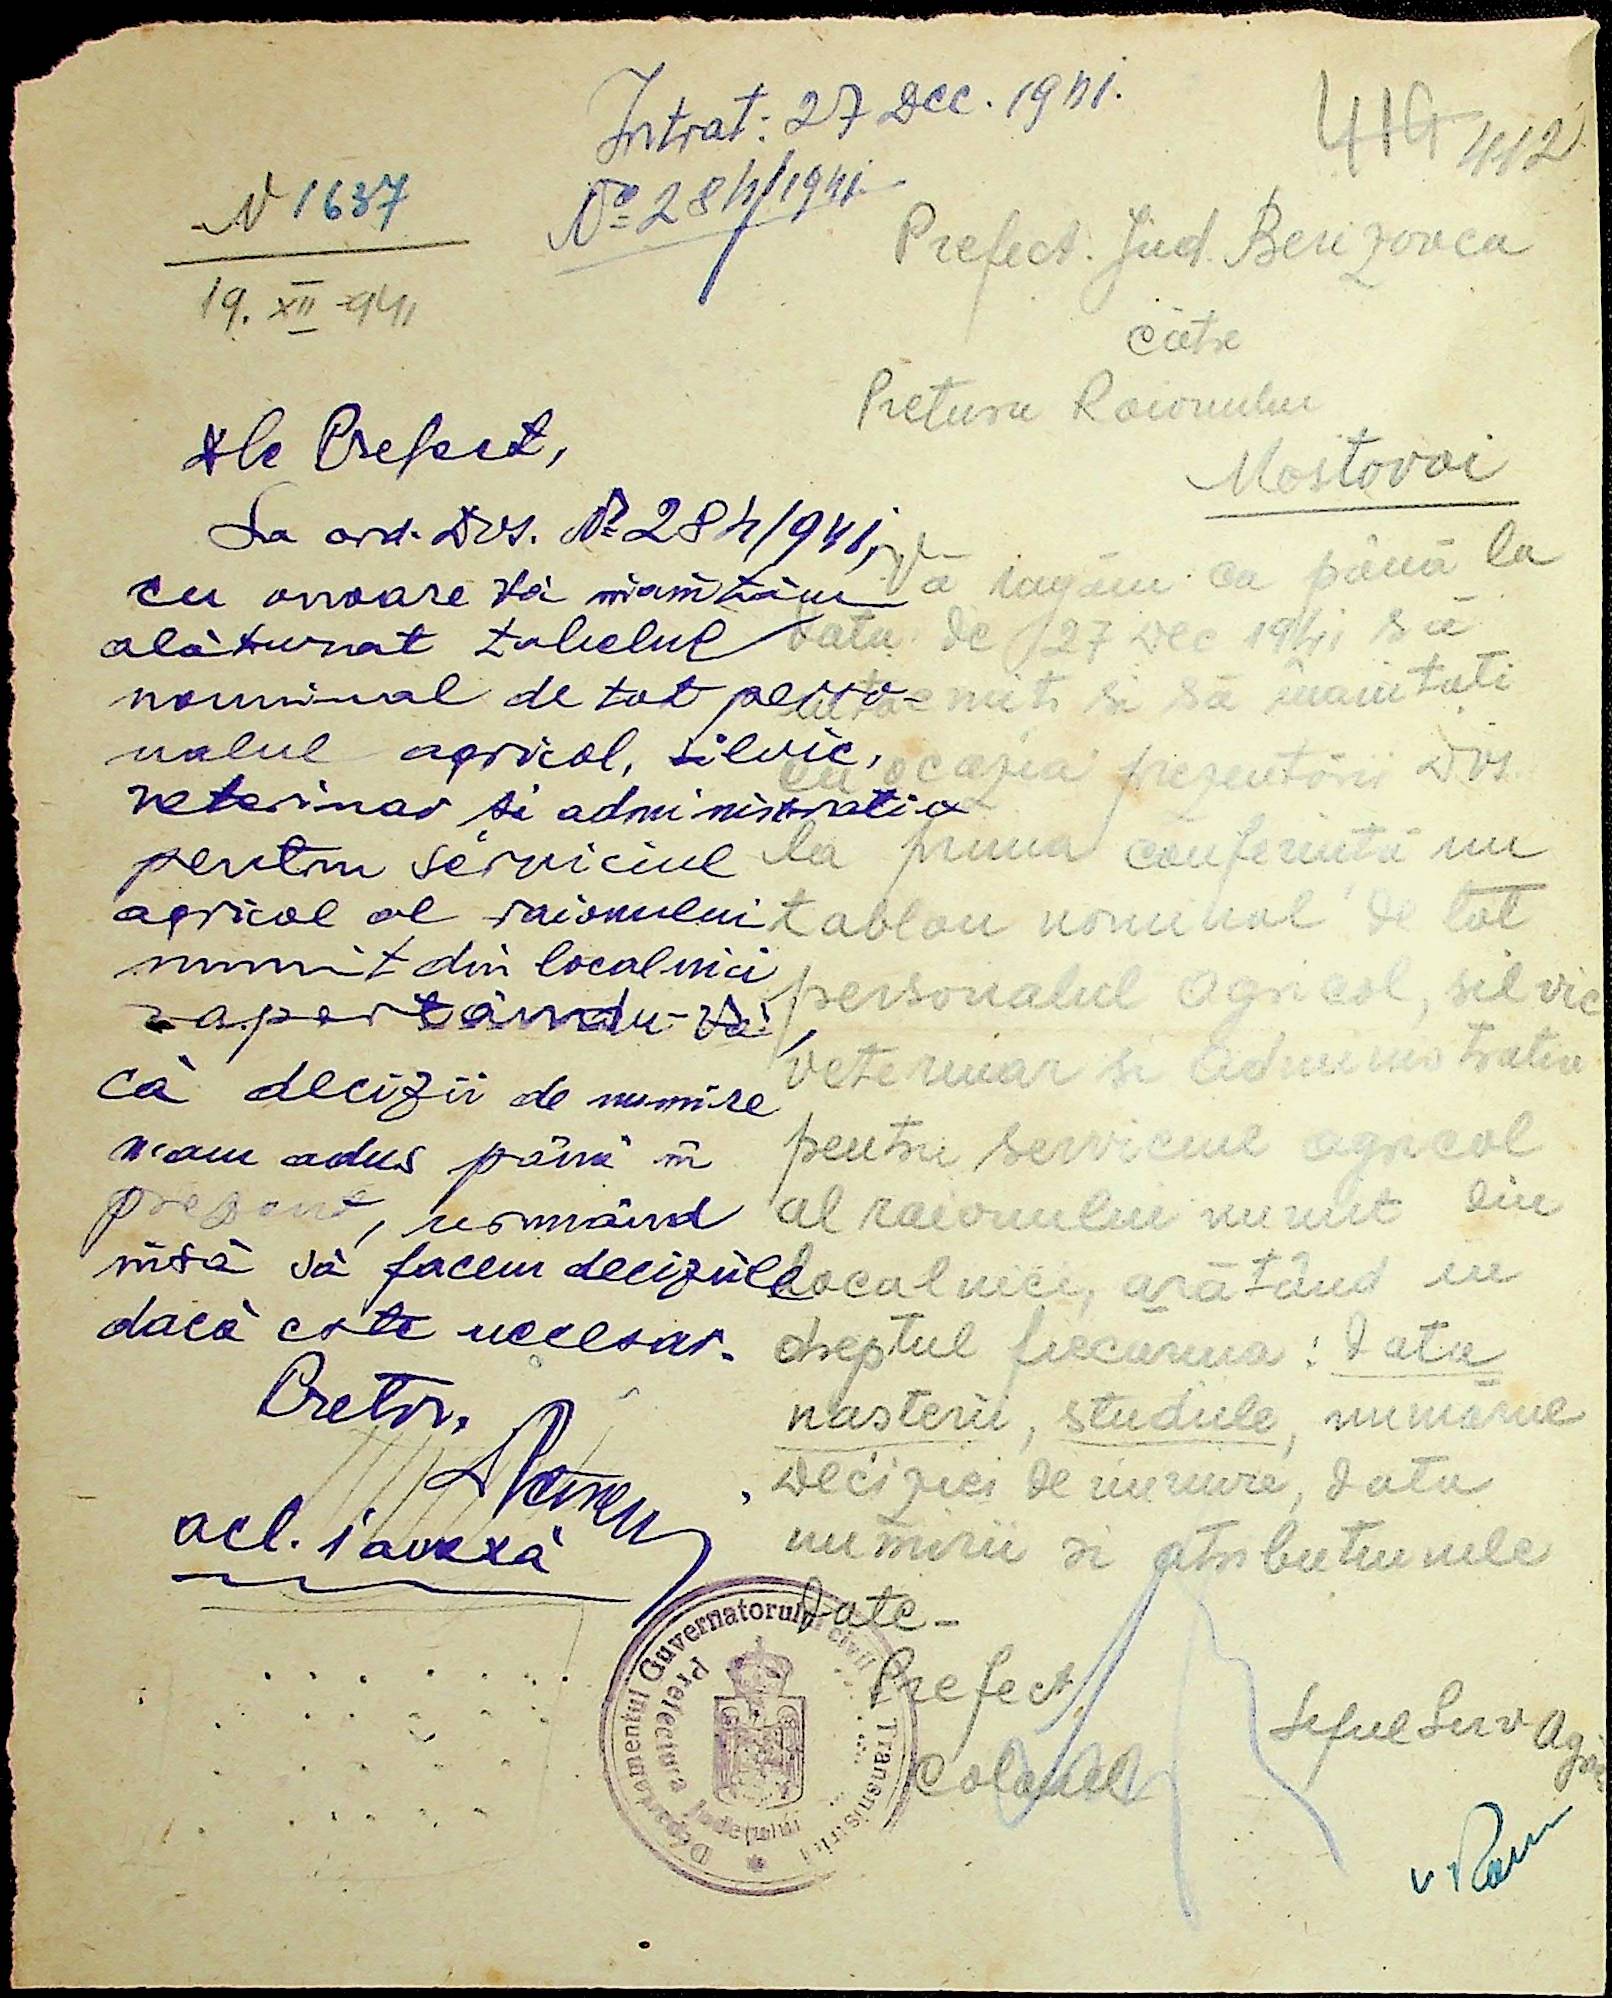 Intrat: 27 Dec. 1941.
№ 284/1941
414 412
N 1637
19. XII 941
Prefect. Jud. Berezovca
către
Pretura Raionului
Mostovoi
Vă rugăm ca până la
data de 27 Dec 1941 să
întocmiți si să înaintați
cu ocazia prezentării Dvs.
la prima conferință un
tablou nominal de tot
personalul agricol, silvic
veterinar si administrativ
pentru serviciul agricol
al raionului numit din
localnici, arătând in
dreptul fiecăruia: data
nasterii, studiile, numărul
deciziei de numire, data
numirii si atribuțiunile
date-
Prefect,
Colonel
Seful Serv Agric
Dle Prefect,
La ord. Dvs. № 284/941,
cu onoare vă înaintăm
alăturat tabelul
nominal de tot perso-
nalul agricol, silvic,
veterinar si administrativ
pentru serviciul
agricol al raionului
numit din localnici
raportându-vă,
că decizii de numire
n-am adus până în
prezent, urmând
însă să facem deciziile
dacă este necesar.
Pretor,
acl. 1 anexă
Departamentul Guvernatorului civil Transnistriei
Prefectura Județului